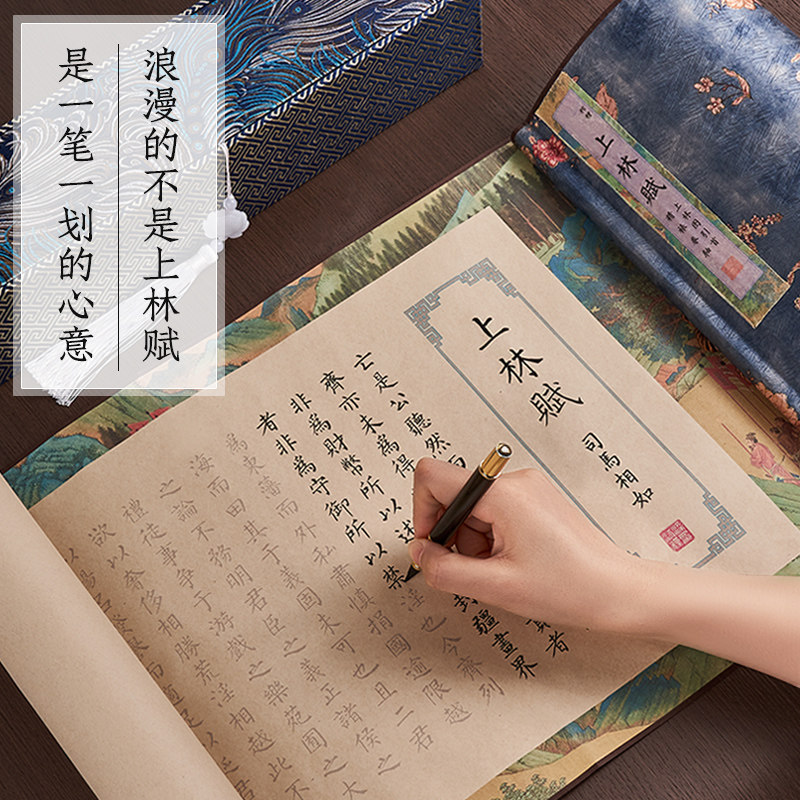 浪漫的不是上林赋
是一笔一划的心意
上林赋
上林賦
司馬相如
亡是公聽然
齊亦未為得
者
非為財幣所以述
封疆畫界
者非為守御所以禁淫也今齊列
為東藩而外私肅慎捐國逾限越
海而田其于義固未可也且二君
之論不務明君臣之義正諸侯之
禮徒事爭于游戲之樂苑囿之大
欲以奢侈相勝荒淫相越此不